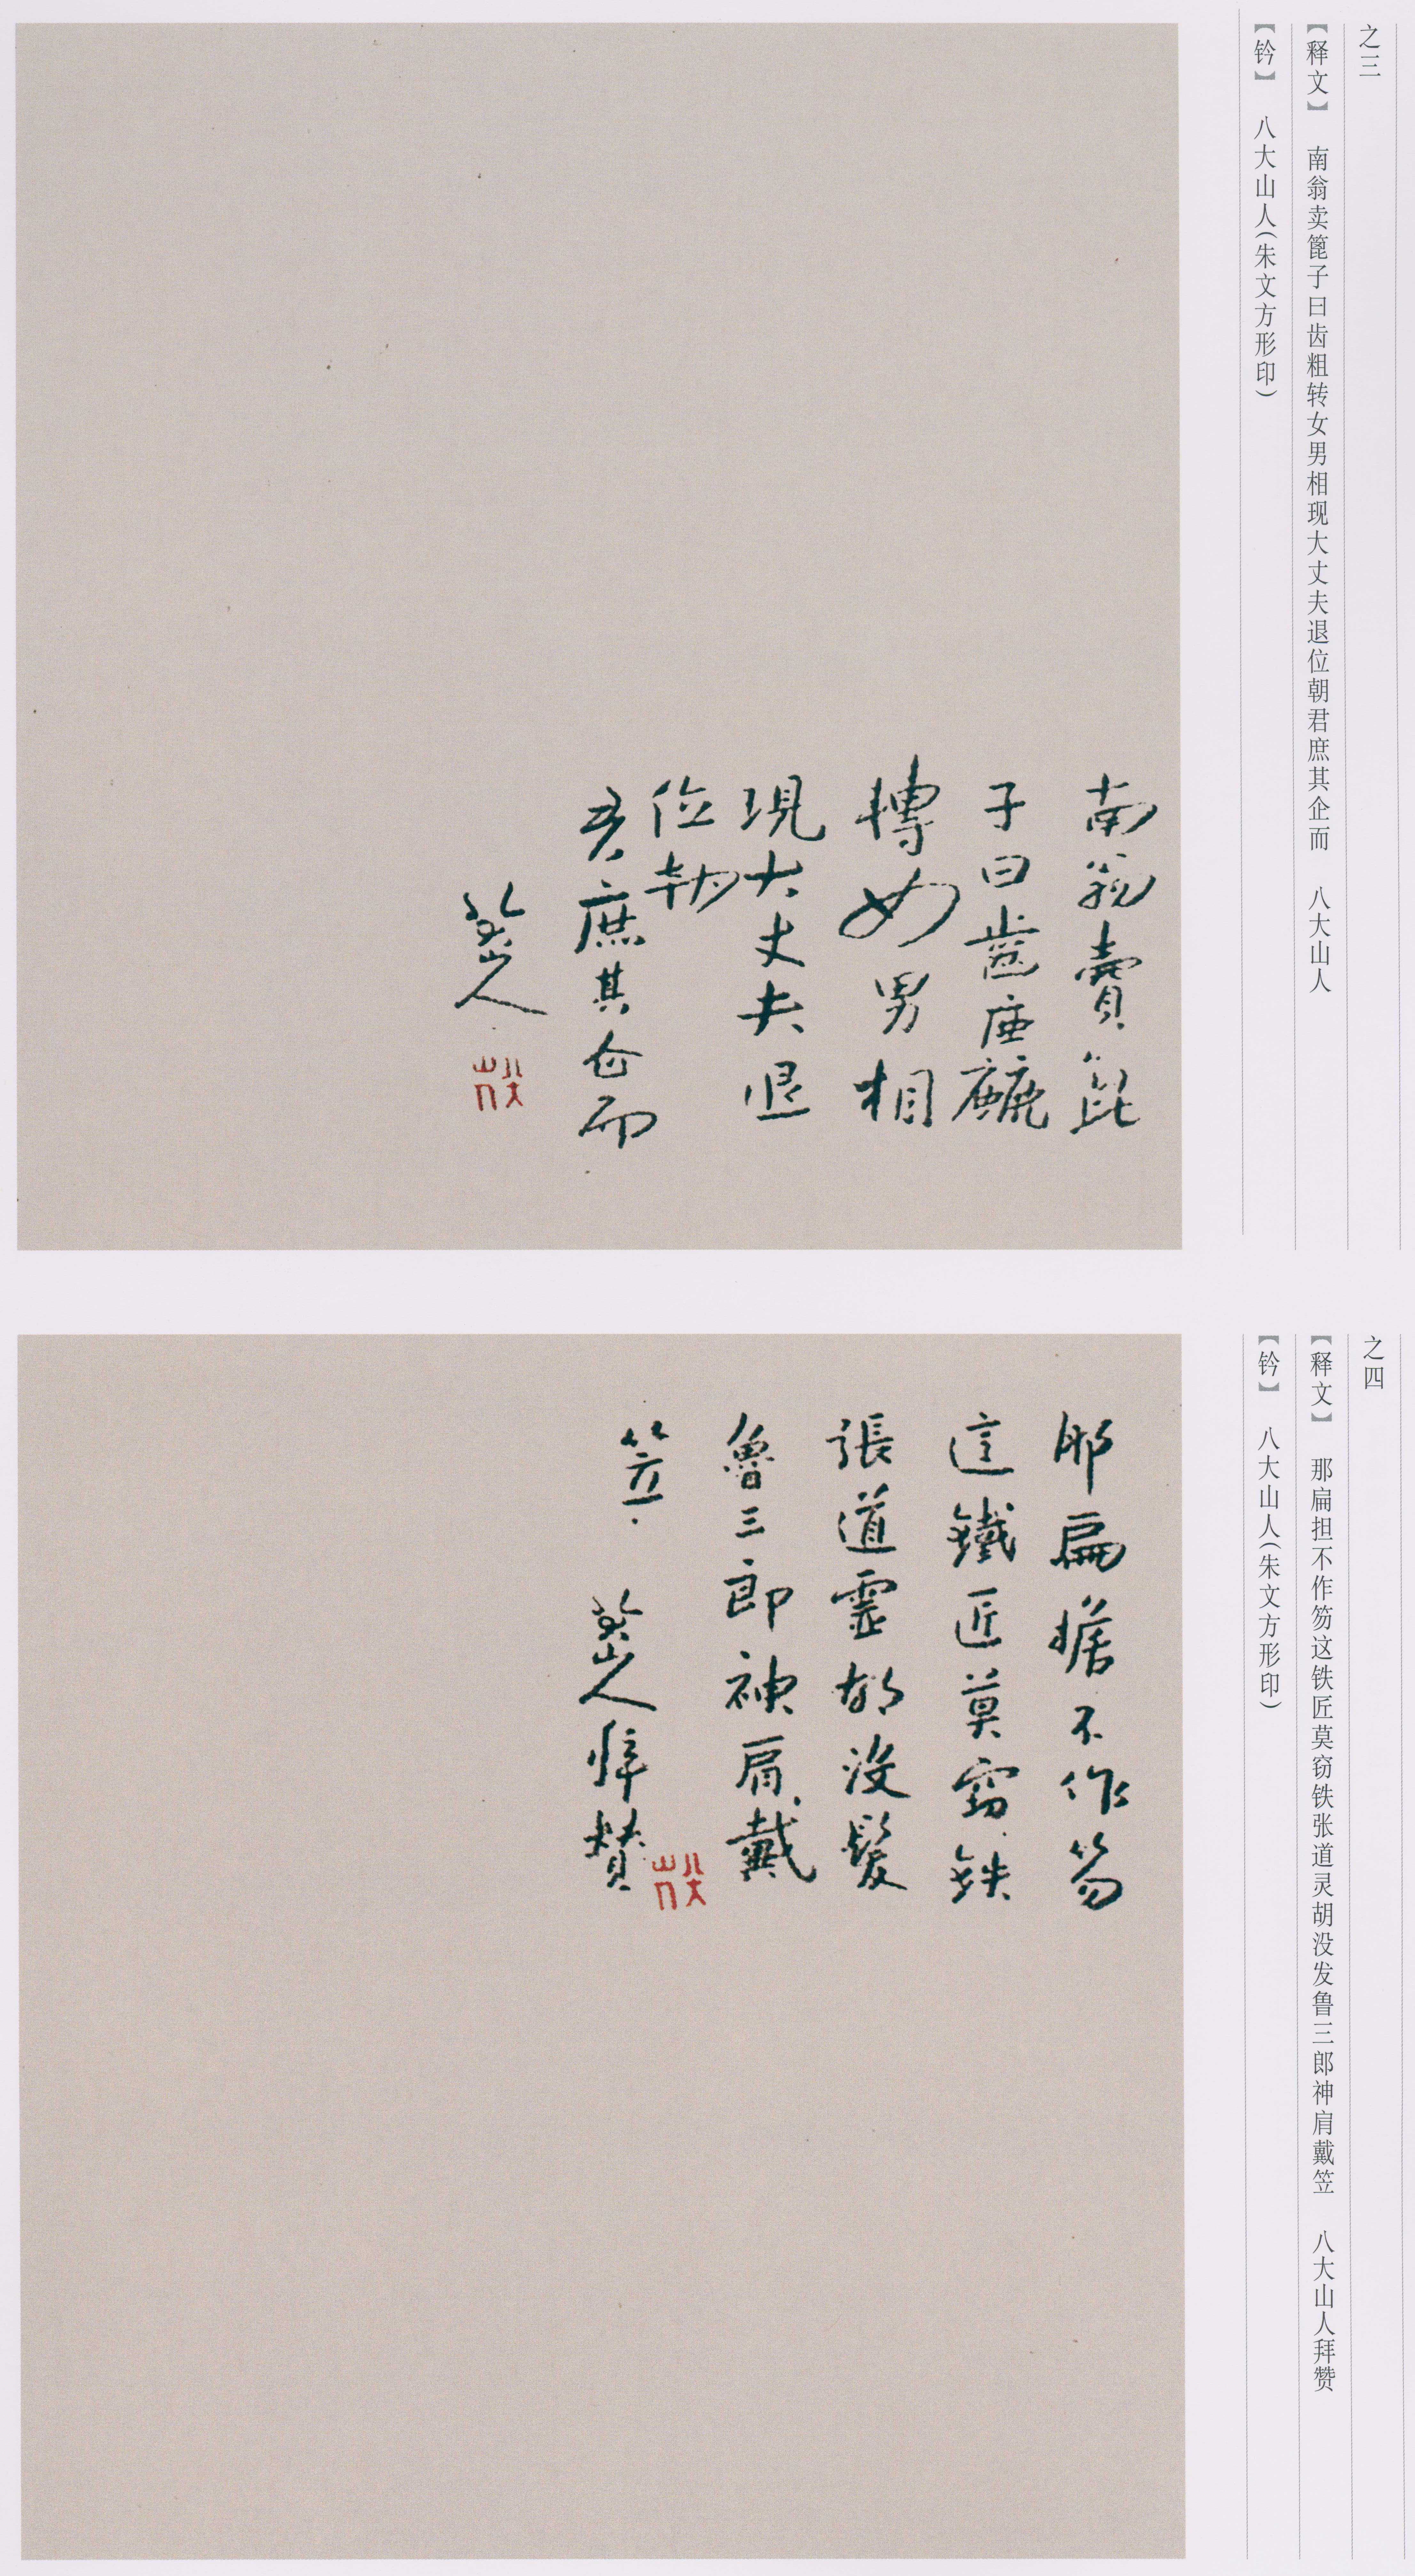 之三
【释文】 南翁卖篦子曰齿粗转女男相现大丈夫退位朝君庶其企而 八大山人
【钤】 八大山人(朱文方形印)
南翁賣篦
子曰齒麤
轉女男相
現大丈夫退
位朝
君庶其企而
八大山人
八大山人
之四
【释文】 那扁担不作笏这铁匠莫窃铁张道灵胡没发鲁三郎神肩戴笠 八大山人拜赞
【钤】 八大山人(朱文方形印)
那扁擔不作笏
這鐵匠莫竊鉄
張道靈胡没髮
魯三郎神肩戴
笠 八大山人拜贊
八大山人